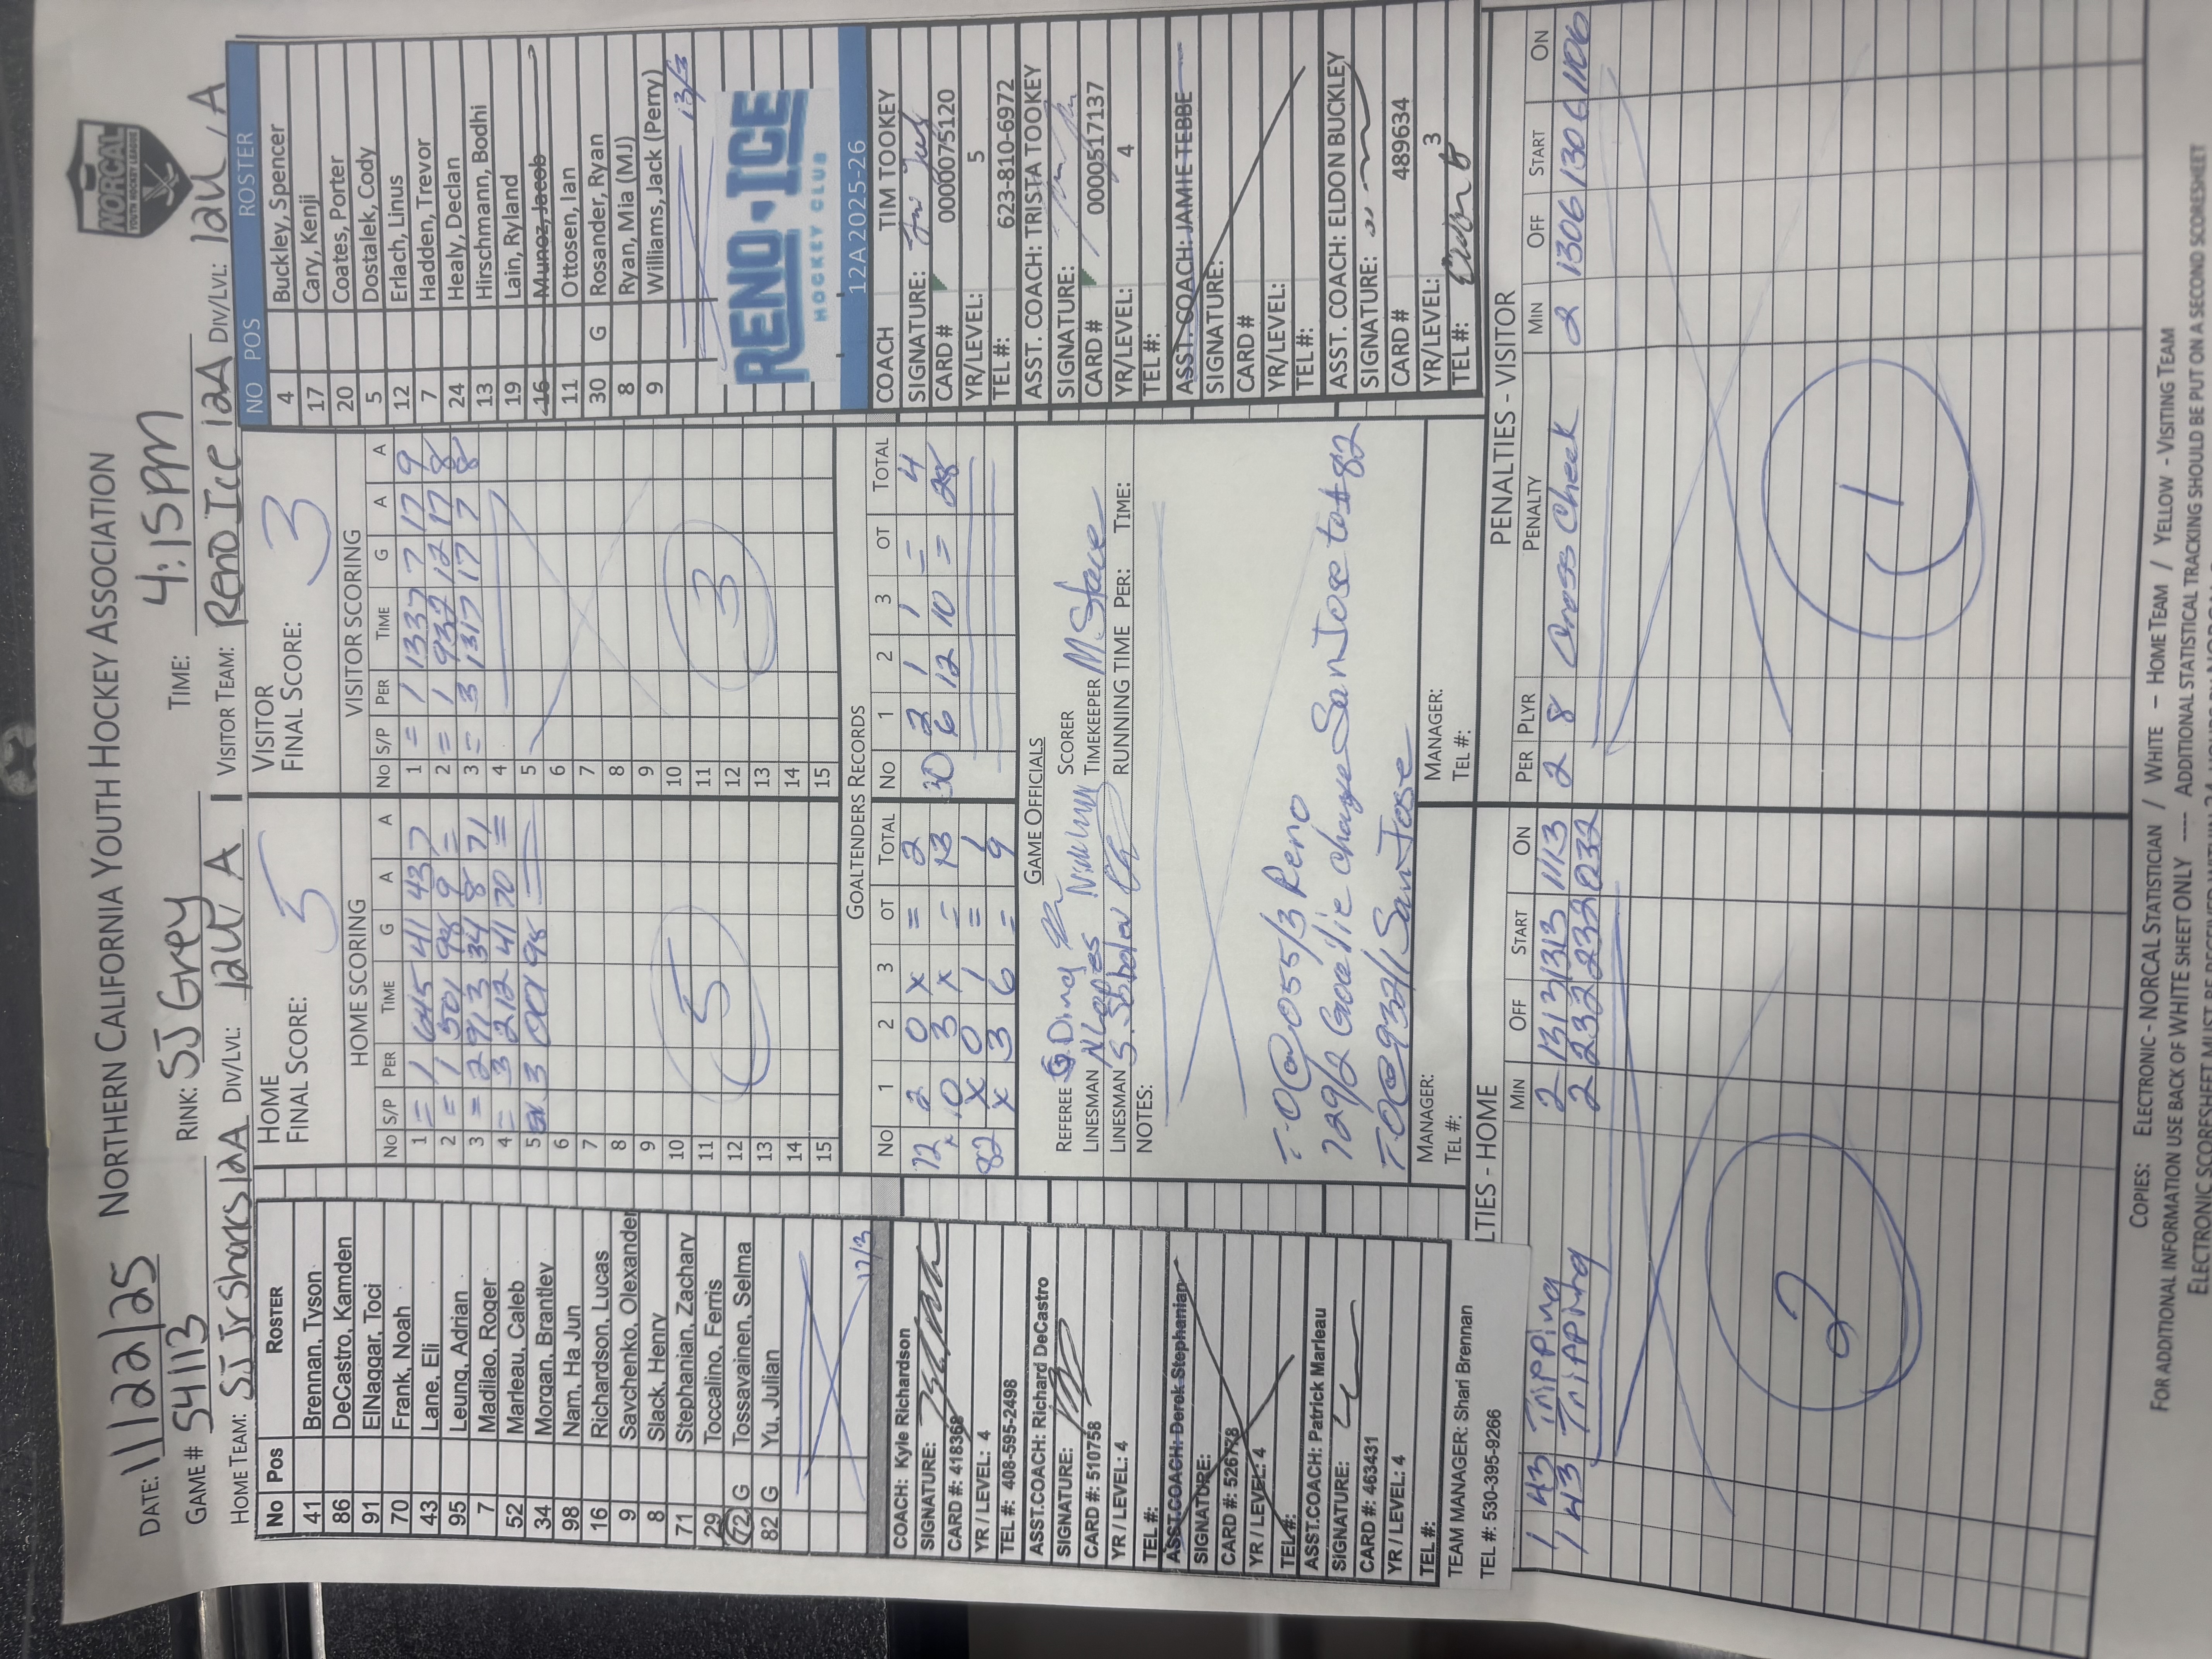 NORTHERN CALIFORNIA YOUTH HOCKEY ASSOCIATION
NORCAL
YOUTH HOCKEY LEAGUE
DATE: 11/22/25
GAME # 54113
RINK: SJ Grey
TIME: 4:15pm
HOME TEAM: SJ Jr Sharks 12A DIV/LVL: 12U A
VISITOR TEAM: Reno Ice 12A DIV/LVL: 12U A
No Pos Roster
41 Brennan, Tyson
86 DeCastro, Kamden
91 ElNaggar, Toci
70 Frank, Noah
43 Lane, Eli
95 Leung, Adrian
7 Madilao, Roger
52 Marleau, Caleb
34 Morgan, Brantley
98 Nam, Ha Jun
16 Richardson, Lucas
9 Savchenko, Olexander
8 Slack, Henry
71 Stephanian, Zachary
29 Toccalino, Ferris
72 G Tossavainen, Selma
82 G Yu, Julian
17/3
COACH: Kyle Richardson
SIGNATURE:
CARD #: 418368
YR / LEVEL: 4
TEL #: 408-595-2498
ASST.COACH: Richard DeCastro
SIGNATURE:
CARD #: 510758
YR / LEVEL: 4
TEL #:
ASST.COACH: Derek Stephanian
SIGNATURE:
CARD #: 526778
YR / LEVEL: 4
TEL #:
ASST.COACH: Patrick Marleau
SIGNATURE:
CARD #: 463431
YR / LEVEL: 4
TEL #:
TEAM MANAGER: Shari Brennan
TEL #: 530-395-9266
HOME
FINAL SCORE: 5
HOME SCORING
NO S/P PER TIME G A A
1 = 1 645 41 43 7
2 = 1 501 98 9 =
3 = 2 913 34 8 71
4 = 3 212 41 70 =
5 3 001 98
6
7
8
9
10
11
12
13
14
15
5
VISITOR
FINAL SCORE: 3
VISITOR SCORING
NO S/P PER TIME G A A
1 = 1 1337 7 17 9
2 = 1 932 12 17 8
3 = 3 1317 17 7 8
4
5
6
7
8
9
10
11
12
13
14
15
3
GOALTENDERS RECORDS
NO 1 2 3 OT TOTAL
72 2 0 x = 2
10 3 x = 13
82 x 0 1 = 1
x 3 6 = 9
NO 1 2 3 OT TOTAL
30 2 1 1 = 4
6 12 10 = 28
GAME OFFICIALS
REFEREE
SCORER
LINESMAN
TIMEKEEPER M Stace
LINESMAN
RUNNING TIME PER: TIME:
NOTES:
T-O@055/3 Reno
729/2 Goalie change San Jose to #82
T-O@932/1 San Jose
MANAGER:
TEL #:
MANAGER:
TEL #:
NO POS ROSTER
4 Buckley, Spencer
17 Cary, Kenji
20 Coates, Porter
5 Dostalek, Cody
12 Erlach, Linus
7 Hadden, Trevor
24 Healy, Declan
13 Hirschmann, Bodhi
19 Lain, Ryland
16 Munoz, Jacob
11 Ottosen, Ian
30 G Rosander, Ryan
8 Ryan, Mia (MJ)
9 Williams, Jack (Perry)
13/3
RENO·ICE
HOCKEY CLUB
12A 2025-26
COACH TIM TOOKEY
SIGNATURE:
CARD # 0000075120
YR/LEVEL: 5
TEL #: 623-810-6972
ASST. COACH: TRISTA TOOKEY
SIGNATURE:
CARD # 0000517137
YR/LEVEL: 4
TEL #:
ASST. COACH: JAMIE TEBBE
SIGNATURE:
CARD #
YR/LEVEL:
TEL #:
ASST. COACH: ELDON BUCKLEY
SIGNATURE:
CARD # 489634
YR/LEVEL: 3
TEL #:
LTIES - HOME
MIN OFF START ON
1 43 Tripping 2 1313 1313 1113
1 43 Tripping 2 232 232 032
2
PENALTIES - VISITOR
PER PLYR PENALTY MIN OFF START ON
2 8 Cross Check 2 1306 1306 1106
1
COPIES: ELECTRONIC - NORCAL STATISTICIAN / WHITE - HOME TEAM / YELLOW - VISITING TEAM
FOR ADDITIONAL INFORMATION USE BACK OF WHITE SHEET ONLY ---- ADDITIONAL STATISTICAL TRACKING SHOULD BE PUT ON A SECOND SCORESHEET